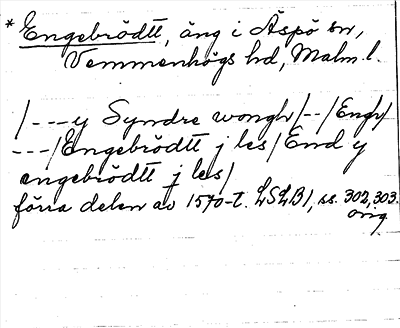 * Engebrödtt, äng i Äspö sn,
Vemmenhögs hd, Malm. l.
/---y Syndre wongh/--/Engh/
---/Engebrödtt j les/End y
engebrödtt j les/
förra delen av 1570-t. LSLB1, ss. 302, 303.
orig.